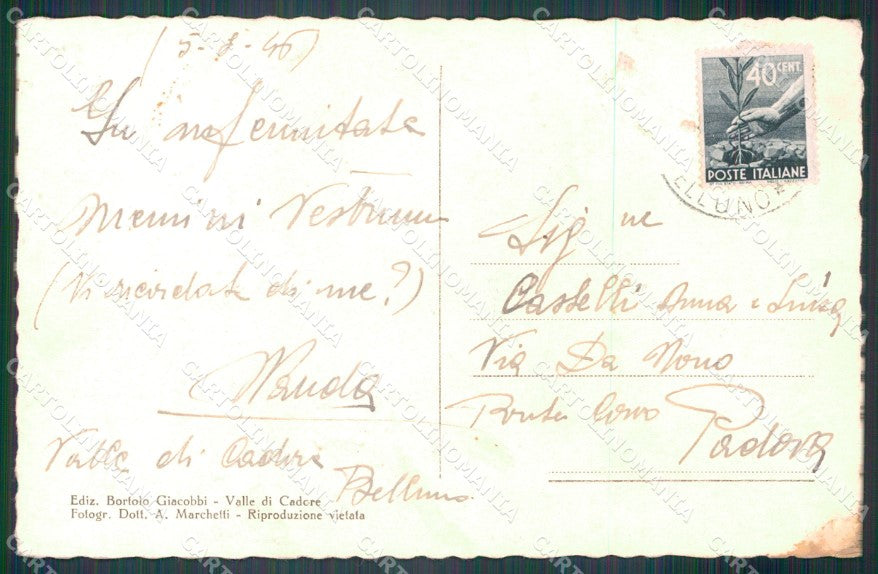 5-8-46
memini Vestrum
(Vi ricordate di me?)
Wanda
Valle di Cadore
Belluno
Ediz. Bortolo Giacobbi - Valle di Cadore
Fotogr. Dott. A. Marchetti - Riproduzione vietata
40 CENT.
POSTE ITALIANE
ELLUNO
Sig ne
Casselli Anna e Luisa
Via Da Nono
Ponte Corvo
Padova
CARTOLINOMANIA